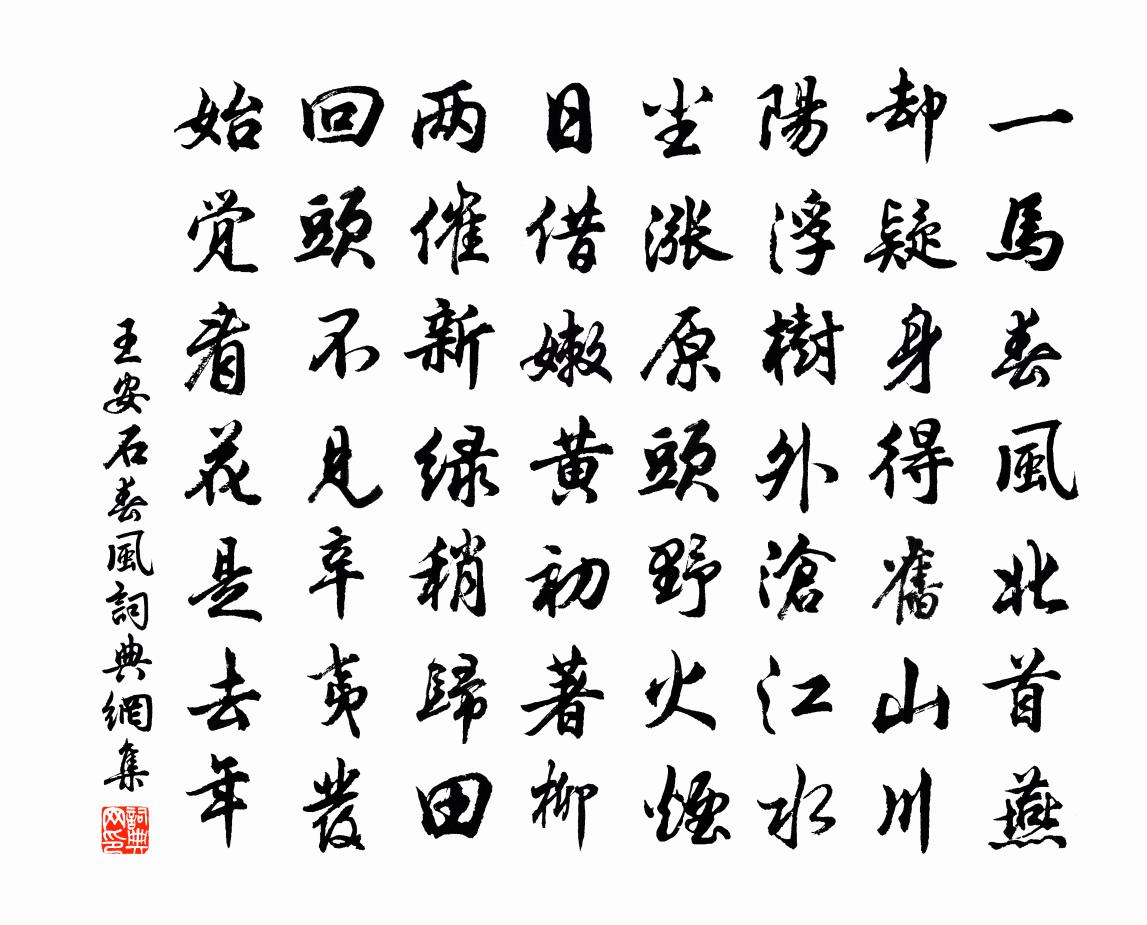 一馬春風北首燕
却疑身得舊山川
陽浮樹外滄江水
尘漲原頭野火煙
日借嫩黄初著柳
两催新緑稍歸田
回頭不見辛夷發
始觉看花是去年
王安石春風詞典網集
詞典网印